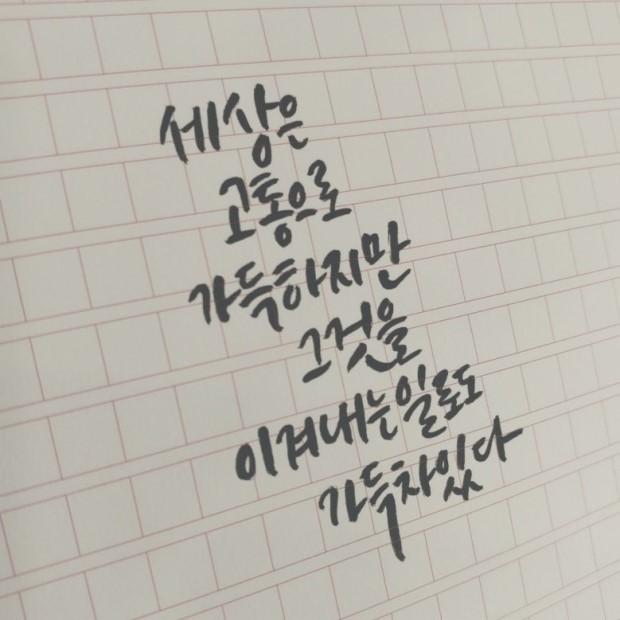 세상은
고통으로
가득하지만
그것을
이겨내는일로도
가득차있다